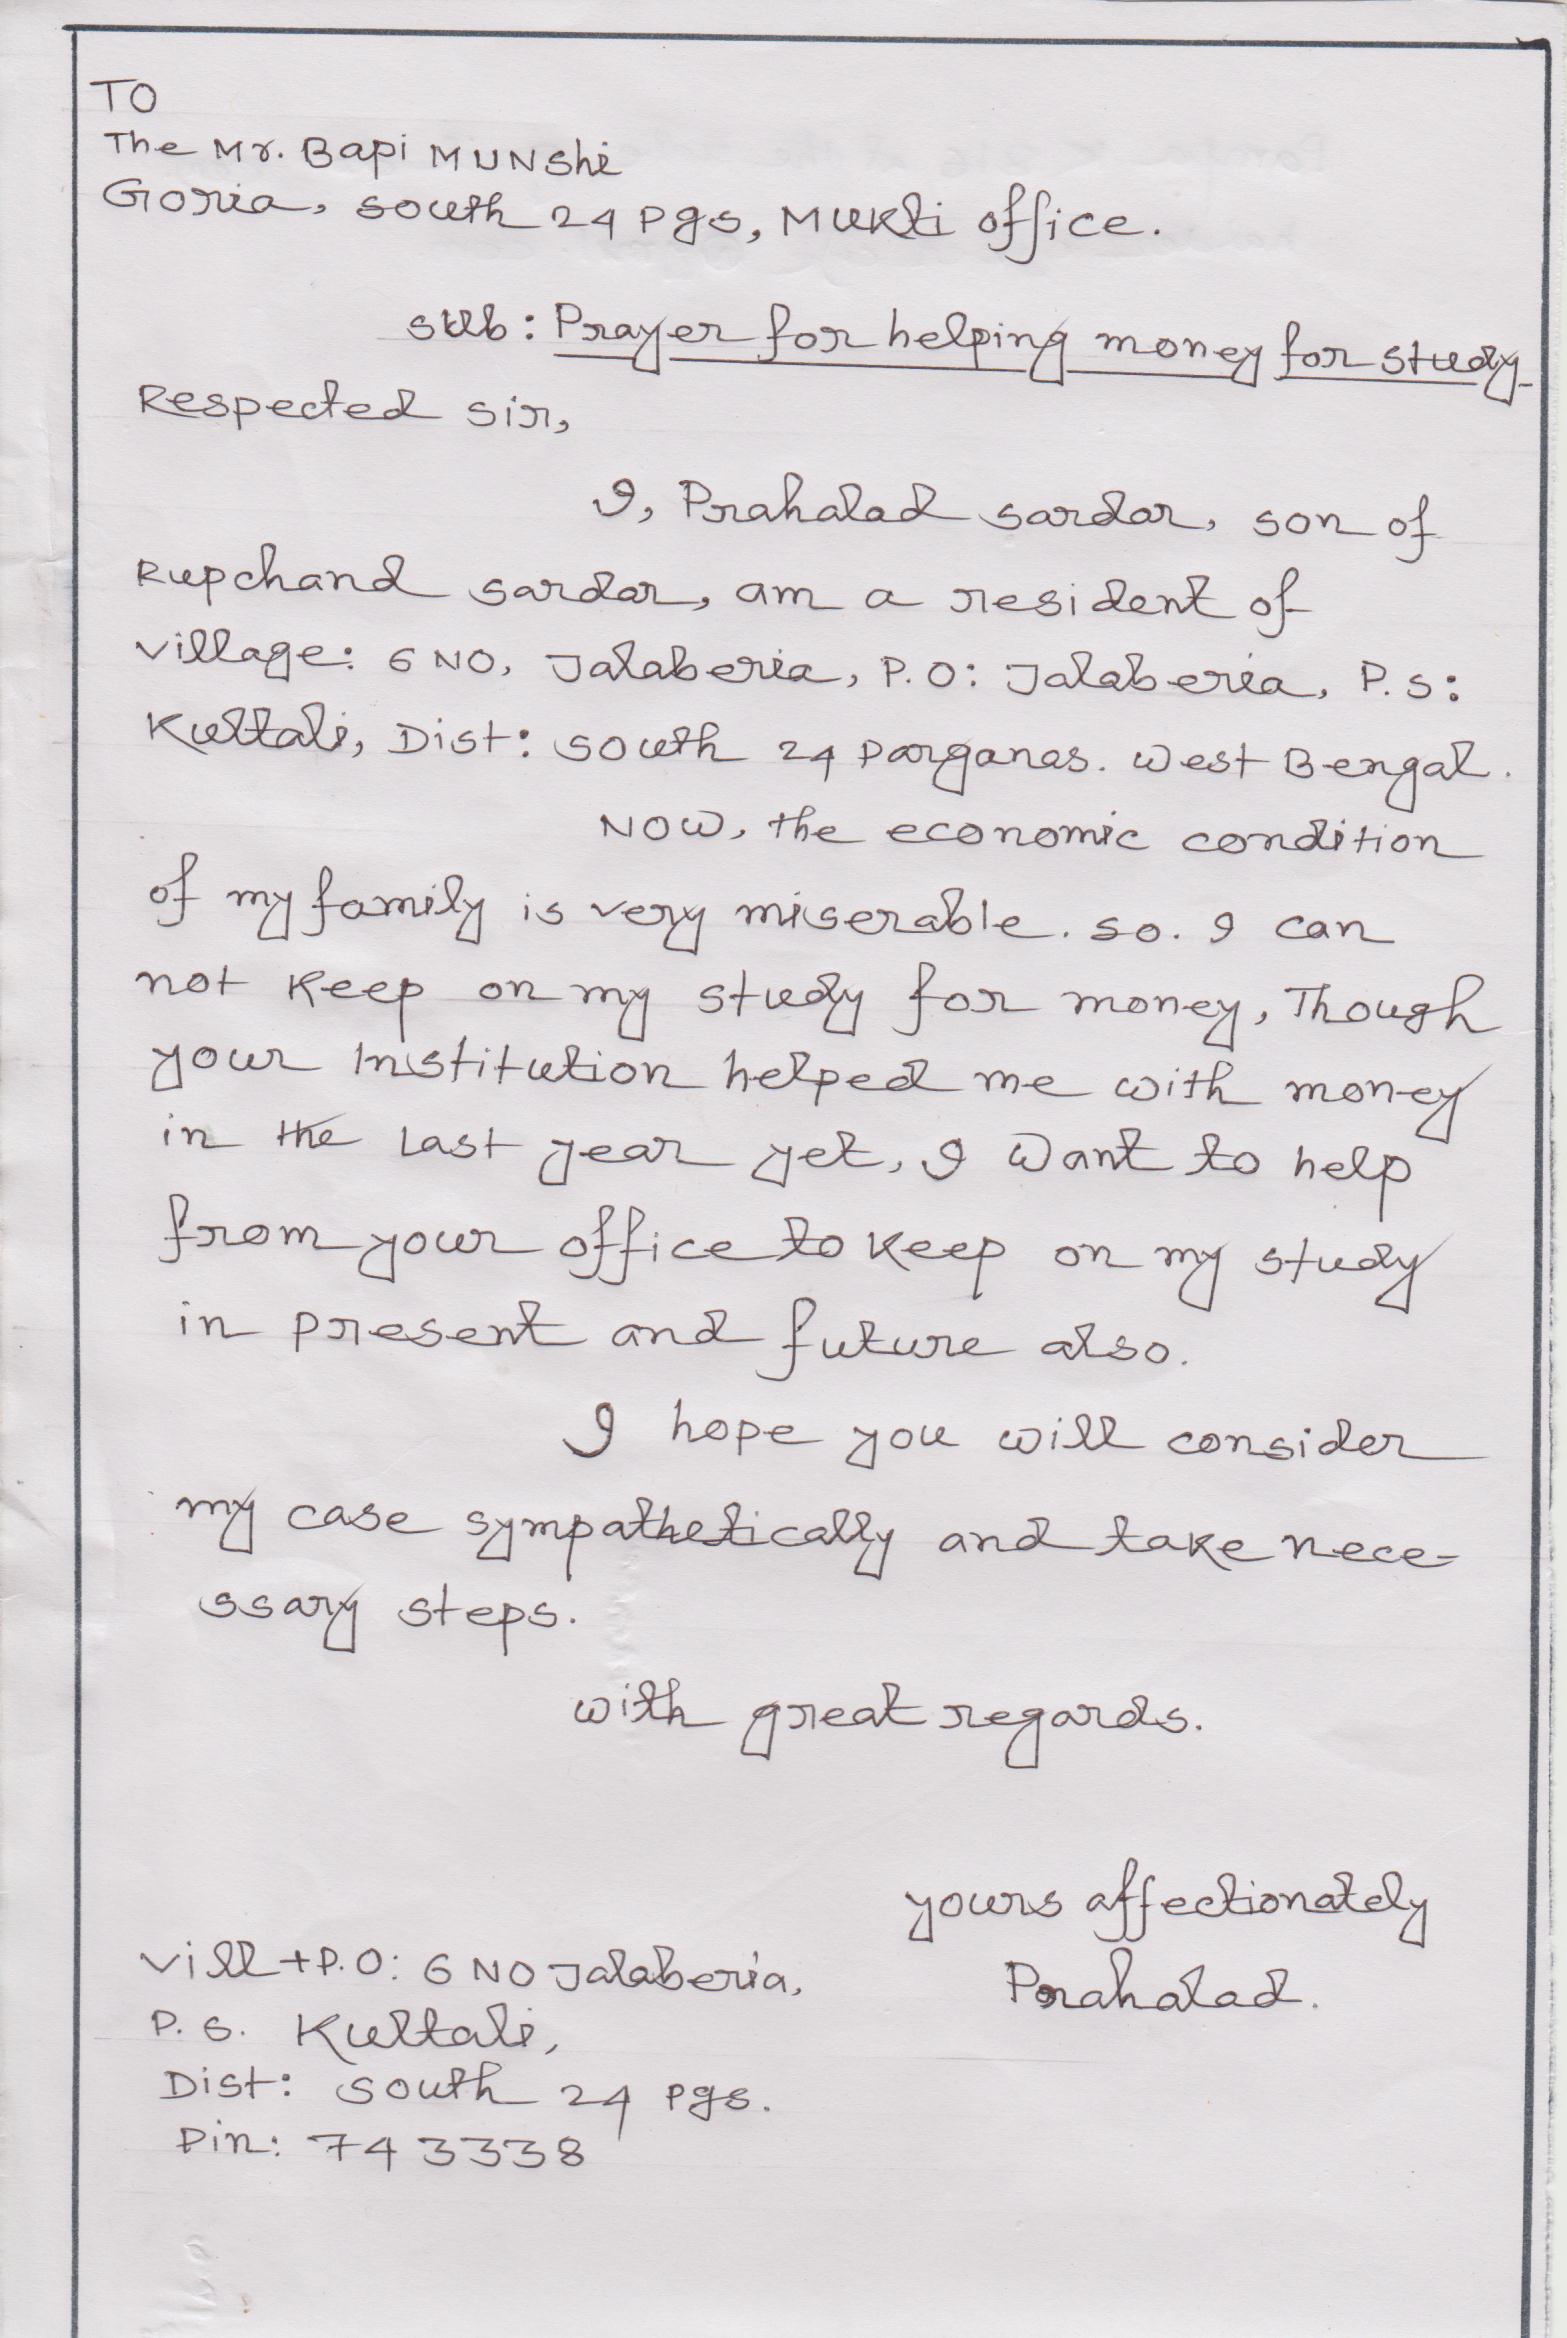 TO
The Mr. Bapi MUNshi
Goria, south 24 pgs, Mukti office.
sub: Prayer for helping money for study
Respected sir,
I, Prahalad sardar, son of
Rupchand sardar, am a resident of
village: 6 NO, Jalaberia, P.O: Jalaberia, P.S:
Kultali, Dist: south 24 parganas. West Bengal.
NOW, the economic condition
of my family is very miserable. so. I can
not keep on my study for money, Though
your Institution helped me with money
in the last year yet, I want to help
from your office to keep on my study
in present and future also.
I hope you will consider
my case sympathetically and take nece-
ssary steps.
with great regards.
yours affectionately
Prahalad.
vill + P.O: 6 NO Jalaberia,
P.S. Kultali,
Dist: south 24 pgs.
Pin: 743338